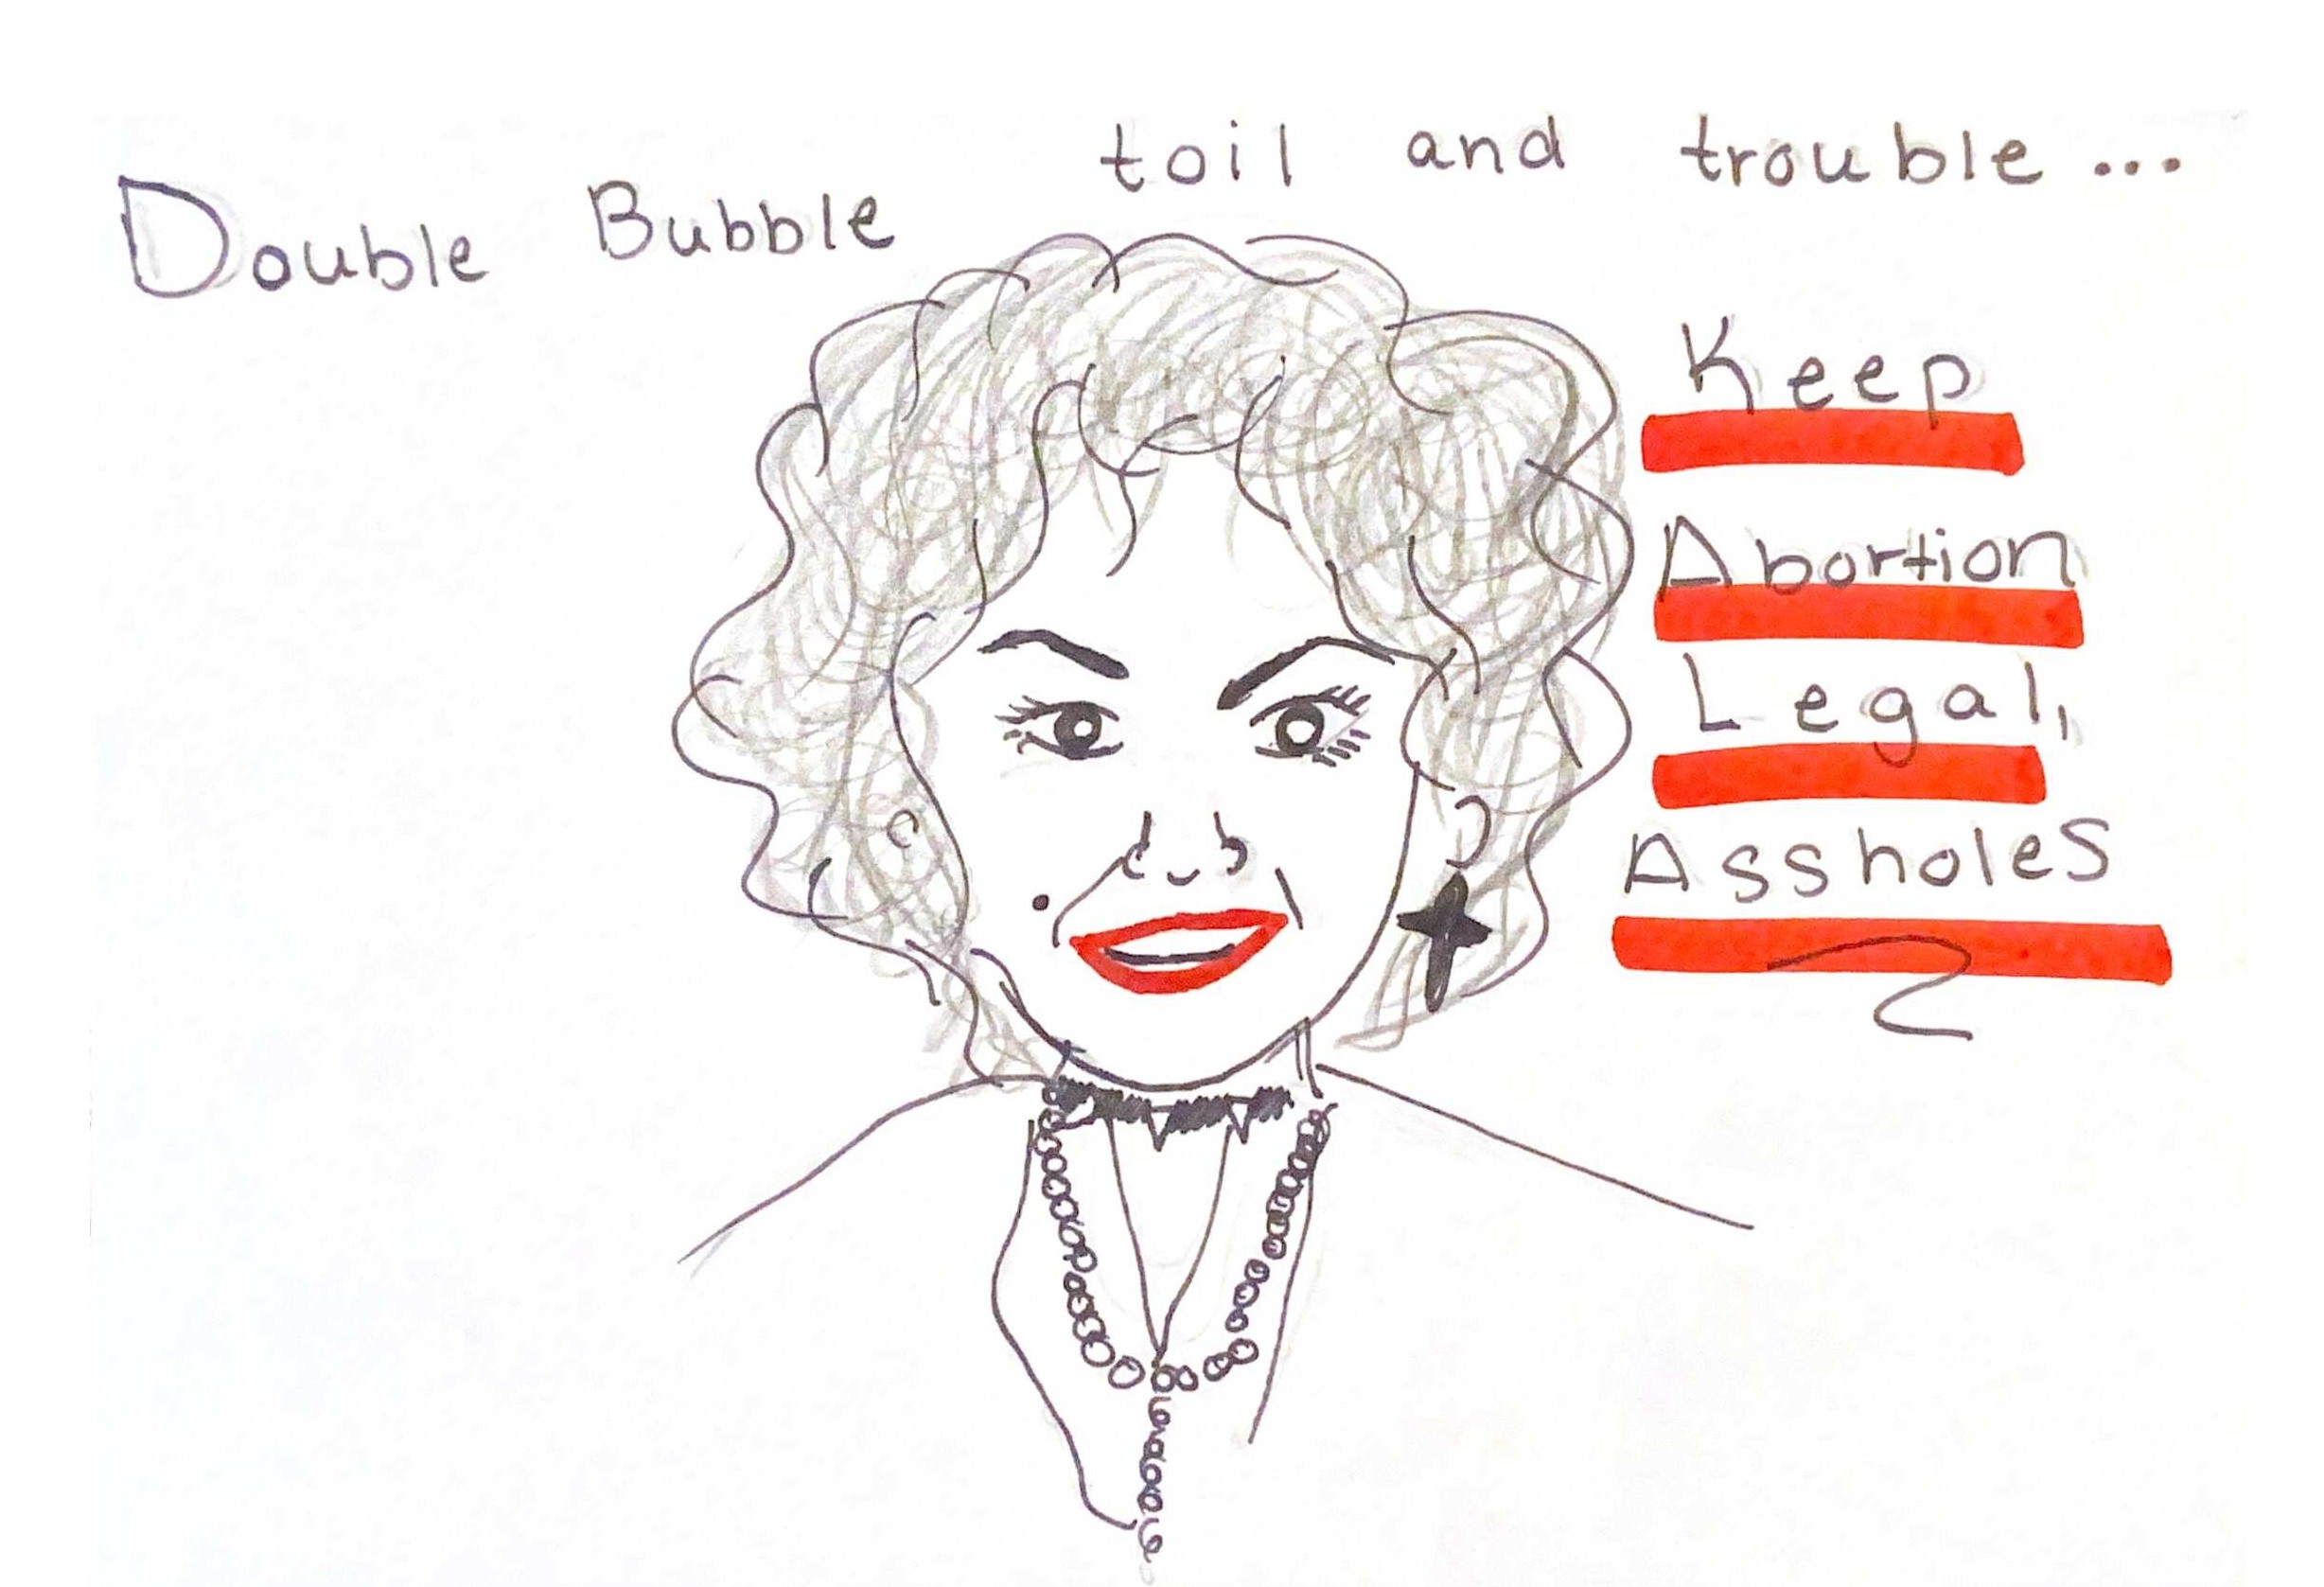 Double Bubble toil and trouble...
Keep
Abortion
Legal,
Assholes